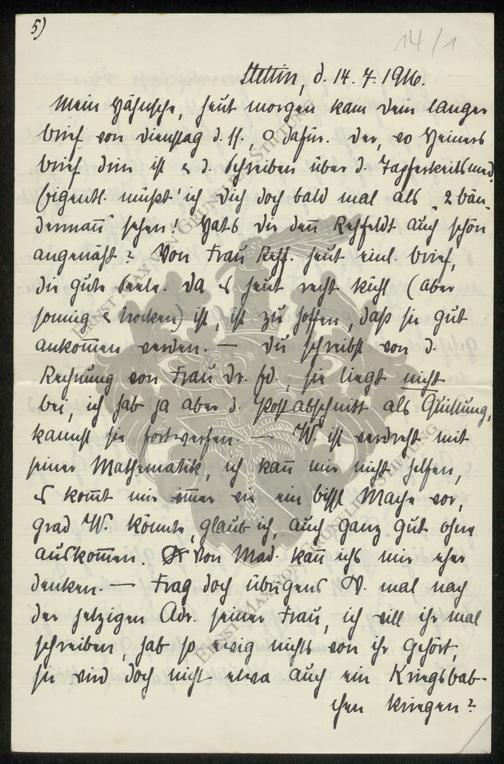 5)
14/1
Stettin, d. 14.7.1916.
Mein Hähnsche, heut morgen kam Dein langer
Brief von Dienstag d. 11., o dafür. Der, wo Heiners
Brief drin ist & d. Schreiben über d. Tapferkeitsmed.
(eigentl. müßt' ich Dich doch bald mal als "2 bän-
dermann" sehen! Hats Dir denn Rehfeldt auch schön
angenäht? Von Frau Rehf. heut einl. Brief,
die gute Seele. Da es heut recht kühl (aber
sonnig & trocken) ist, ist zu hoffen, daß sie gut
ankommen werden. — Du schreibst von d.
Rechnung von Frau Dr. , sie liegt nicht
bei, ich hab ja aber d. Postabschnitt als Quittung,
kannst sie fortwerfen. — W. ist verdreht mit
seiner Mathematik, ich kann mir nicht helfen,
es kommt mir immer wie ein bissl Mache vor,
grad W. könnte, glaub ich, auch ganz gut ohne
auskommen. Von Mad. kann ichs mir eher
denken. — Frag doch übrigens W. mal nach
der jetzigen Adr. seiner Frau, ich will ihr mal
schreiben, hab so ewig nichts von ihr gehört,
sie wird doch nicht etwa auch ein Kriegsbab-
chen kriegen?
ERNST MAX VON GRUNELIUS-STIFTUNG
ERNST MAX VON GRUNELIUS-STIFTUNG